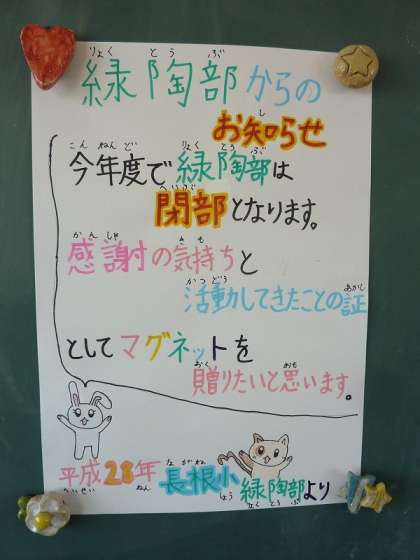 緑陶部からの
お知らせ
今年度で緑陶部は
閉部となります。
感謝の気持ちと
活動してきたことの証
としてマグネットを
贈りたいと思います。
平成28年 長根小
緑陶部より